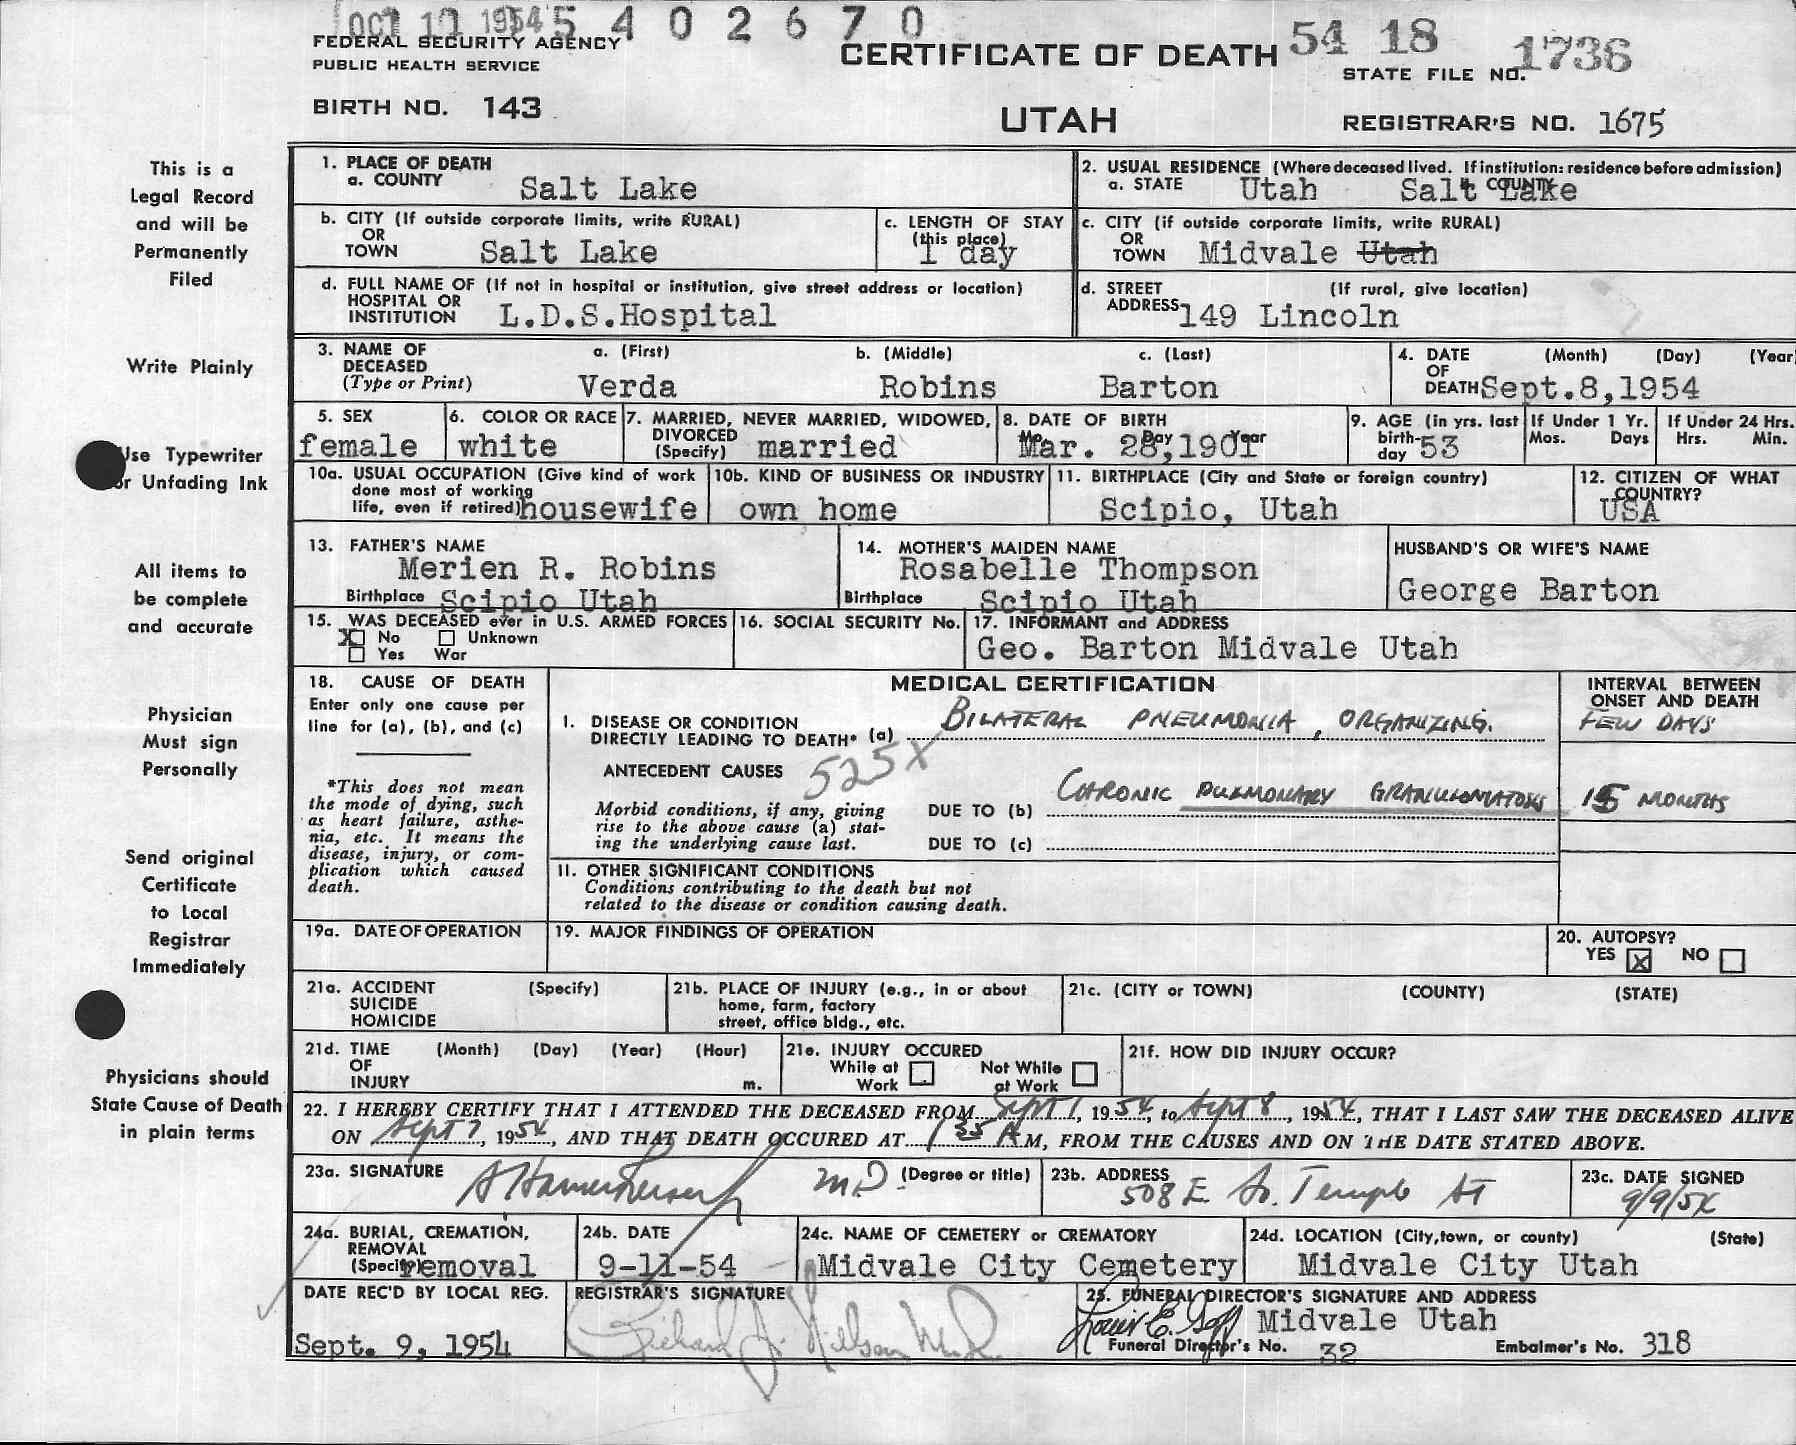 OCT 11 1954 5 4 0 2 6 7 0
FEDERAL SECURITY AGENCY
PUBLIC HEALTH SERVICE
CERTIFICATE OF DEATH
54 18 1736
STATE FILE NO.
BIRTH NO. 143
UTAH
REGISTRAR'S NO. 1675
This is a
Legal Record
and will be
Permanently
Filed
Write Plainly
Use Typewriter
or Unfading Ink
All items to
be complete
and accurate
Physician
Must sign
Personally
Send original
Certificate
to Local
Registrar
Immediately
Physicians should
State Cause of Death
in plain terms
1. PLACE OF DEATH
a. COUNTY Salt Lake
2. USUAL RESIDENCE (Where deceased lived. If institution: residence before admission)
a. STATE Utah b. COUNTY Salt Lake
b. CITY (If outside corporate limits, write RURAL)
OR
TOWN Salt Lake
c. LENGTH OF STAY
(this place)
1 day
c. CITY (if outside corporate limits, write RURAL)
OR
TOWN Midvale Utah
d. FULL NAME OF (If not in hospital or institution, give street address or location)
HOSPITAL OR
INSTITUTION L.D.S.Hospital
d. STREET (If rural, give location)
ADDRESS 149 Lincoln
3. NAME OF a. (First) b. (Middle) c. (Last)
DECEASED
(Type or Print) Verda Robins Barton
4. DATE (Month) (Day) (Year)
OF
DEATH Sept.8,1954
5. SEX
female
6. COLOR OR RACE
white
7. MARRIED, NEVER MARRIED, WIDOWED,
DIVORCED
(Specify) married
8. DATE OF BIRTH
Mo. Day Year
Mar. 28,1901
9. AGE (in yrs. last
birth-
day 53
If Under 1 Yr.
Mos. Days
If Under 24 Hrs.
Hrs. Min.
10a. USUAL OCCUPATION (Give kind of work
done most of working
life, even if retired) housewife
10b. KIND OF BUSINESS OR INDUSTRY
own home
11. BIRTHPLACE (City and State or foreign country)
Scipio, Utah
12. CITIZEN OF WHAT
COUNTRY?
USA
13. FATHER'S NAME
Merien R. Robins
Birthplace Scipio Utah
14. MOTHER'S MAIDEN NAME
Rosabelle Thompson
Birthplace Scipio Utah
HUSBAND'S OR WIFE'S NAME
George Barton
15. WAS DECEASED ever in U.S. ARMED FORCES
X No Unknown
Yes War
16. SOCIAL SECURITY No.
17. INFORMANT and ADDRESS
Geo. Barton Midvale Utah
18. CAUSE OF DEATH
Enter only one cause per
line for (a), (b), and (c)
*This does not mean
the mode of dying, such
as heart failure, asthe-
nia, etc. It means the
disease, injury, or com-
plication which caused
death.
MEDICAL CERTIFICATION
INTERVAL BETWEEN
ONSET AND DEATH
I. DISEASE OR CONDITION
DIRECTLY LEADING TO DEATH* (a) BILATERAL PNEUMONIA, ORGANIZING. FEW DAYS
ANTECEDENT CAUSES 525X
Morbid conditions, if any, giving
rise to the above cause (a) stat-
ing the underlying cause last.
DUE TO (b) CHRONIC PULMONARY GRANULOMATOSIS 15 MONTHS
DUE TO (c)
II. OTHER SIGNIFICANT CONDITIONS
Conditions contributing to the death but not
related to the disease or condition causing death.
19a. DATE OF OPERATION
19. MAJOR FINDINGS OF OPERATION
20. AUTOPSY?
YES X NO
21a. ACCIDENT (Specify)
SUICIDE
HOMICIDE
21b. PLACE OF INJURY (e.g., in or about
home, farm, factory
street, office bldg., etc.
21c. (CITY or TOWN) (COUNTY) (STATE)
21d. TIME (Month) (Day) (Year) (Hour)
OF
INJURY m.
21e. INJURY OCCURED
While at Work Not While at Work
21f. HOW DID INJURY OCCUR?
22. I HEREBY CERTIFY THAT I ATTENDED THE DECEASED FROM Sept 1, 1954, to Sept 8, 1954, THAT I LAST SAW THE DECEASED ALIVE
ON Sept 7, 1954, AND THAT DEATH OCCURED AT 1 35 AM, FROM THE CAUSES AND ON THE DATE STATED ABOVE.
23a. SIGNATURE MD (Degree or title)
23b. ADDRESS
508 E So. Temple St
23c. DATE SIGNED
9/9/54
24a. BURIAL, CREMATION,
REMOVAL
(Specify) removal
24b. DATE
9-11-54
24c. NAME OF CEMETERY or CREMATORY
Midvale City Cemetery
24d. LOCATION (City, town, or county) (State)
Midvale City Utah
DATE REC'D BY LOCAL REG.
Sept. 9, 1954
REGISTRAR'S SIGNATURE
Richard J. Nelson M.D.
25. FUNERAL DIRECTOR'S SIGNATURE AND ADDRESS
Louis E. Goff Midvale Utah
Funeral Director's No. 32 Embalmer's No. 318